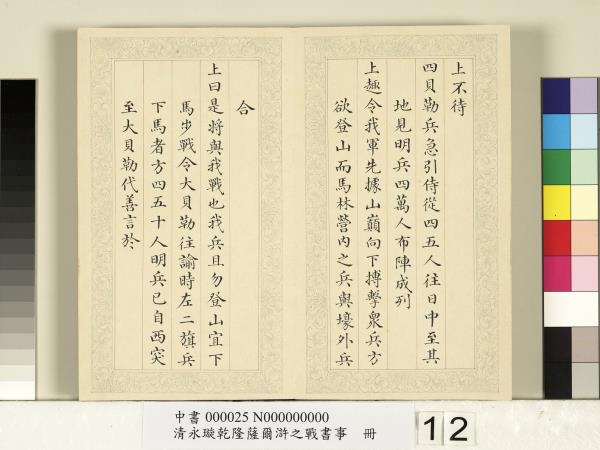 上不待
四貝勒兵急引侍從四五人往日中至其
地見明兵四萬人布陣成列
上趣令我軍先據山巔向下搏擊衆兵方
欲登山而馬林營內之兵與壕外兵
合
上曰是將與我戰也我兵且勿登山宜下
馬步戰令大貝勒往諭時左二旗兵
下馬者方四五十人明兵已自西突
至大貝勒代善言於
中書 000025 N000000000
清永璇乾隆薩爾滸之戰書事 冊
12